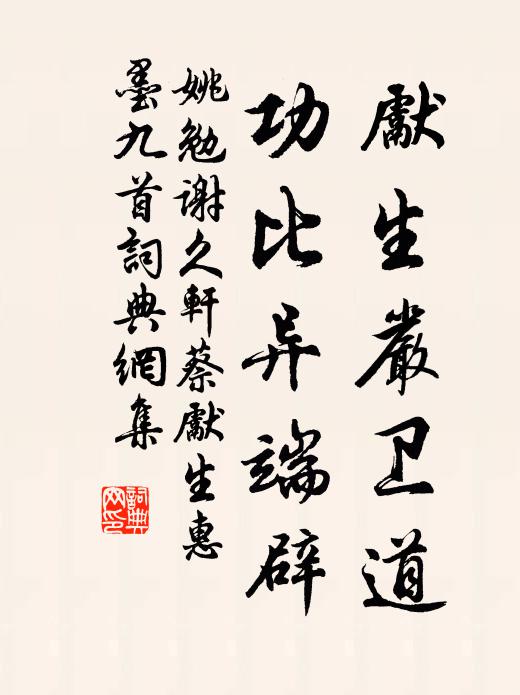 獻生嚴卫道
功比异端辟
姚勉謝久軒蔡獻生惠
墨九首詞典網集
詞典
网印